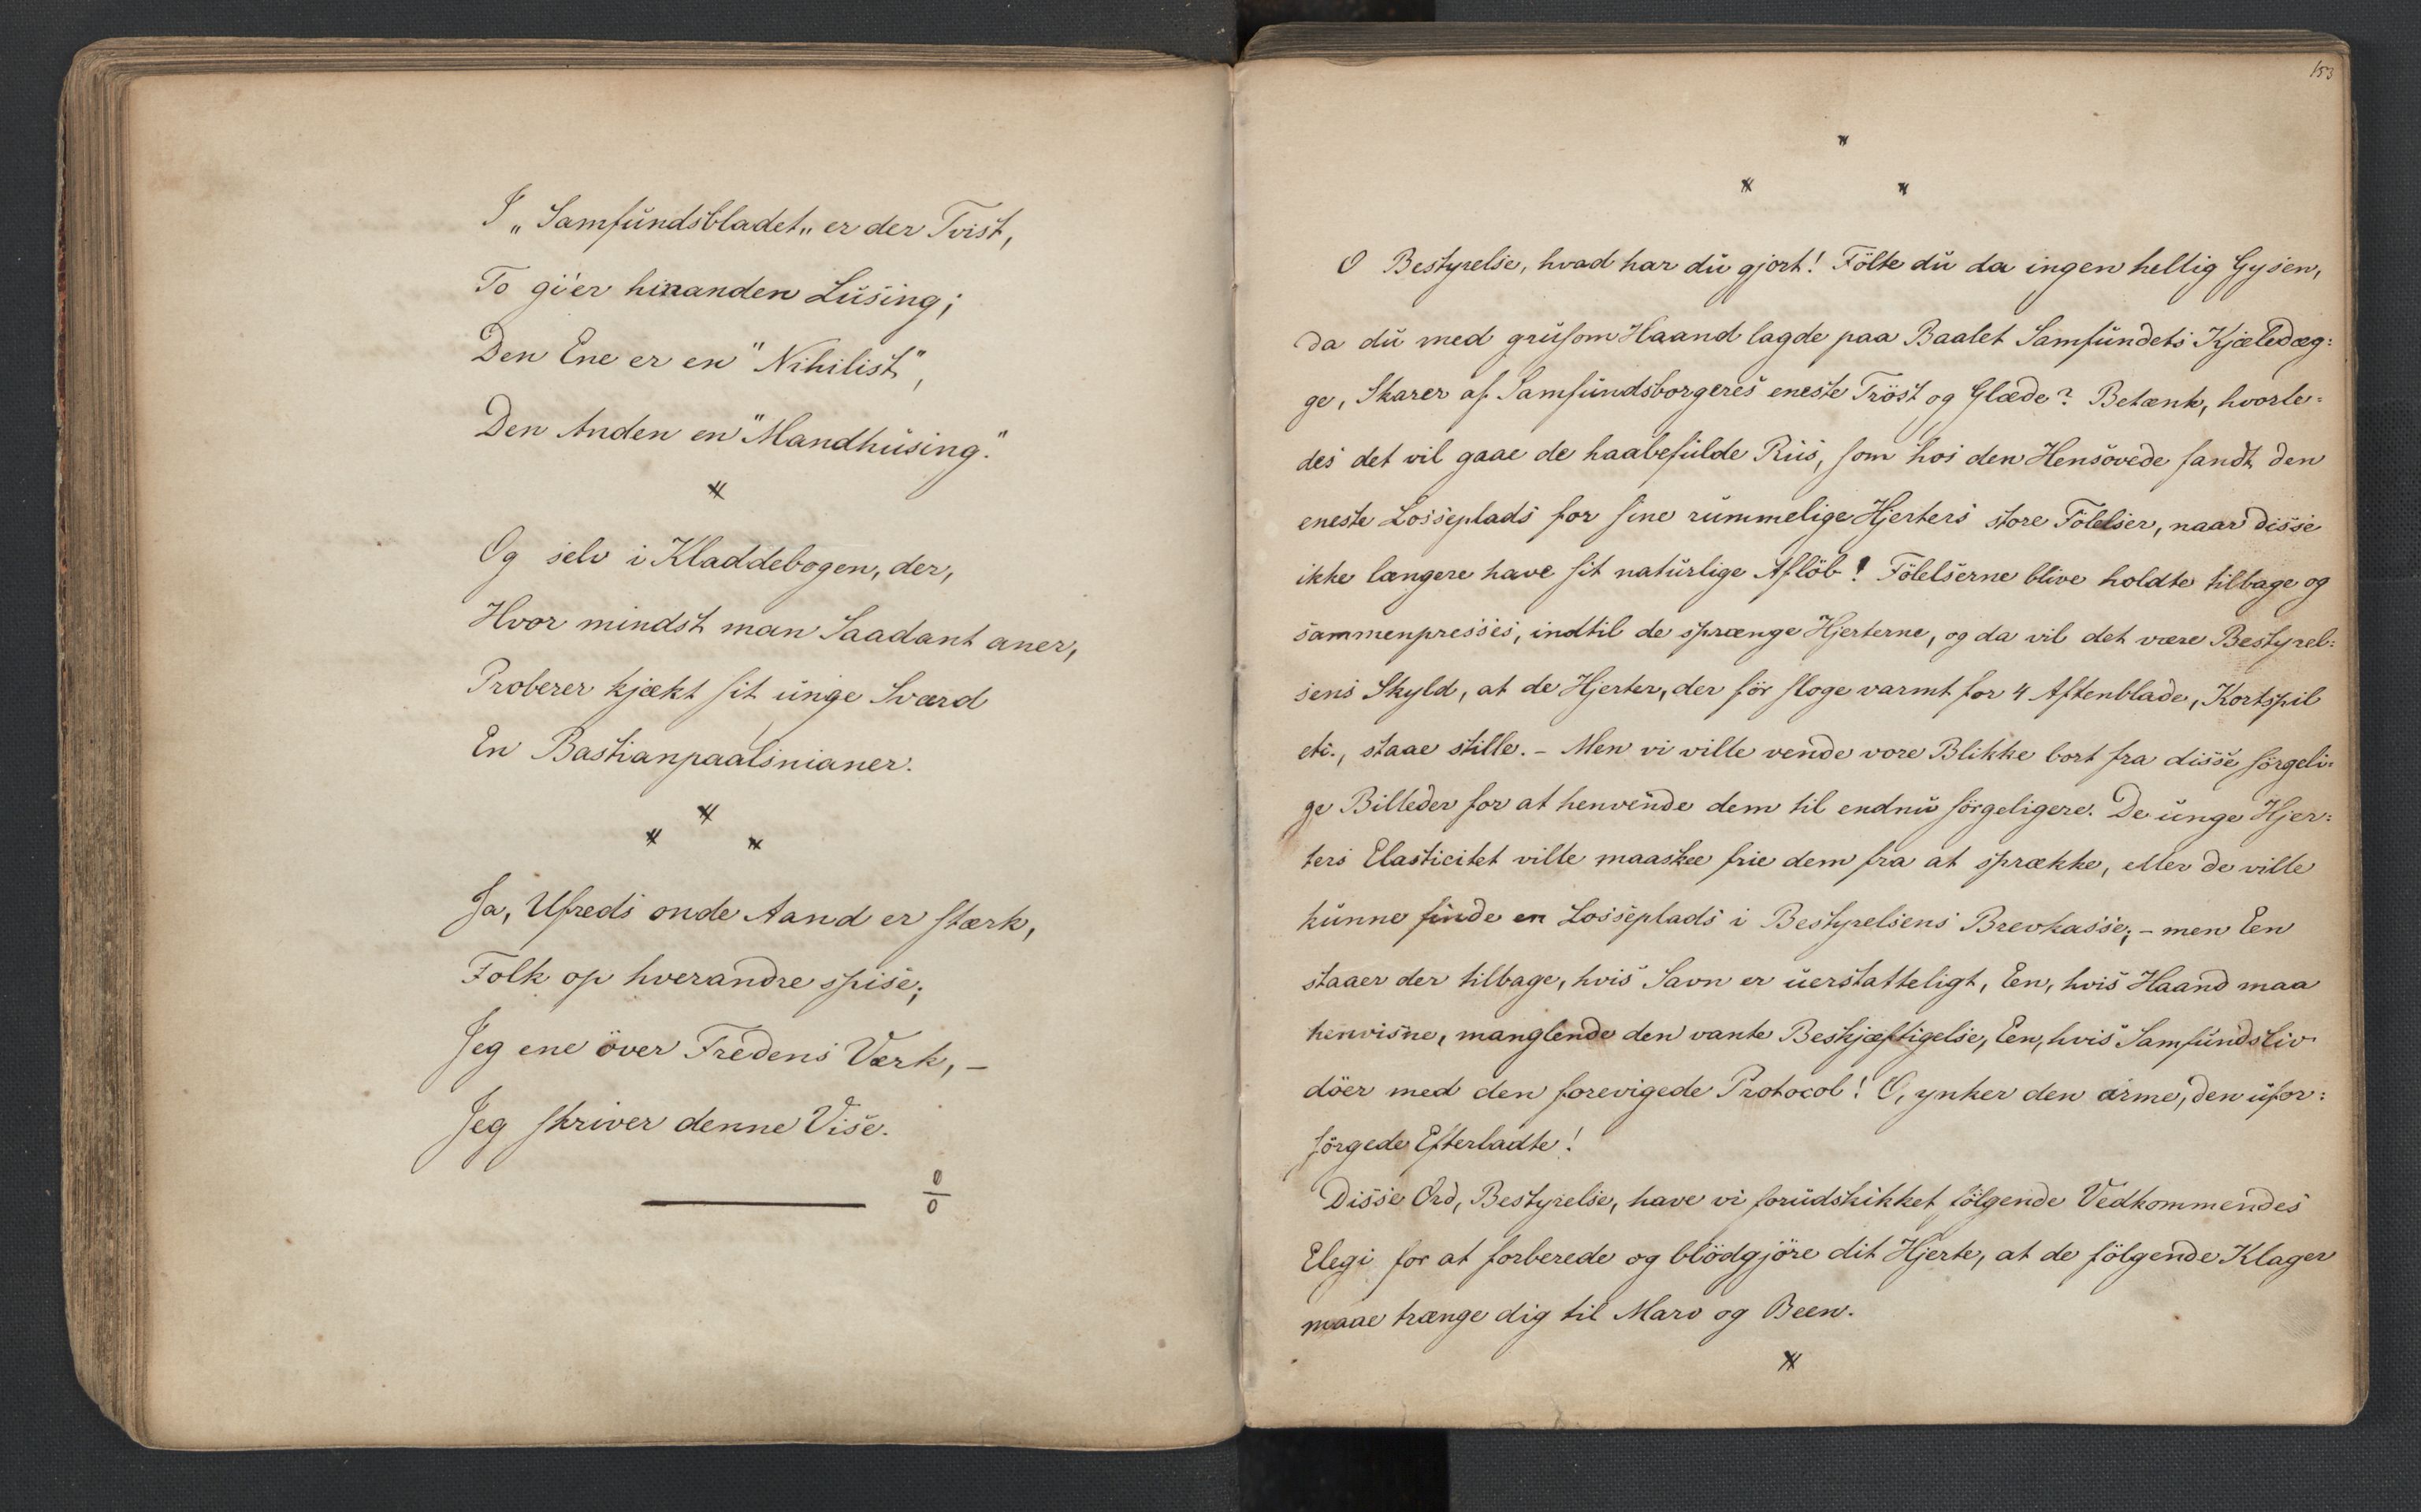 I „Samfundsbladet„ er der Tvist,
To gi'er hinanden Lusing;
Den Ene er en "Nihilist",
Den Anden en "Mandhusing."
*
Og selv i Kladdebogen, der,
Hvor mindst man Saadant aner,
Proberer kjækt sit unge Sværd
En Bastianpaalsnianer.
*
* *
Ja, Ufreds onde Aand er stærk,
Folk op hverandre spise;
Jeg ene över Fredens Værk, –
Jeg skriver denne Vise.
0/0
153
*
* *
O Bestyrelse, hvad har du gjort! Fölte du da ingen hellig Gysen,
da du med grusom Haand lagde paa Baalet Samfundets Kjæledæg:
ge, Skarer af Samfundsborgeres eneste Tröst og Glæde? Betænk, hvorle:
des det vil gaae de haabefulde Rus, som hos den Hensovede fandt den
eneste Losseplads for sine rummelige Hjerters store Fölelser, naar disse
ikke længere have sit naturlige Aflöb! Fölelserne blive holdte tilbage og
sammenpresses, indtil de sprænge Hjerterne, og da vil det være Bestyrel:
sens Skyld, at de Hjerter, der för sloge varmt for 4 Aftenblade, Kortspil
etc., staae stille. – Men vi ville vende vore Blikke bort fra disse sörgeli:
ge Billeder for at henvende dem til endnu sörgeligere. De unge Hjer:
ters Elasticitet ville maaskee frie dem fra at sprække, eller de ville
kunne finde en Losseplads i Bestyrelsens Brevkasse; – men Een
staaer der tilbage, hvis Savn er uerstatteligt, Een, hvis Haand maa
henvisne, manglende den vante Beskjæftigelse, Een, hvis Samfundsliv
döer med den forevigede Protocol! O, ynker den arme, den ufor:
sörgede Efterladte!
Disse Ord, Bestyrelse, have vi forudskikket fölgende Vedkommendes
Elegi for at forberede og blödgjöre dit Hjerte, at de fölgende Klager
maae trænge dig til Marv og Been.
*